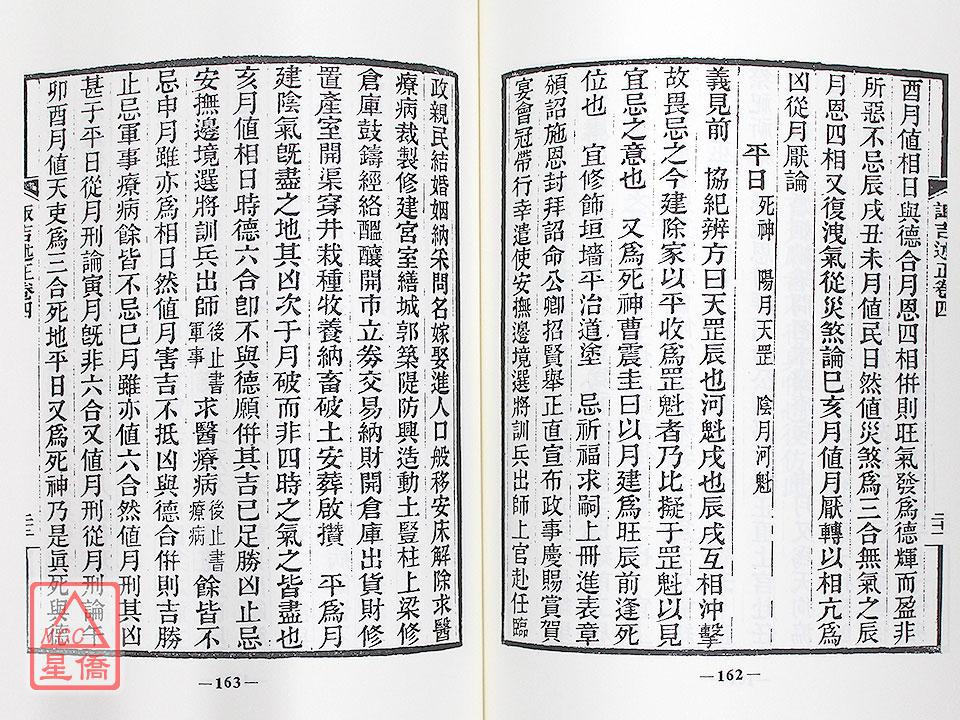 酉月值相日與德合月恩四相倂則旺氣發爲德輝而盈非
所惡不忌辰戌丑未月值民日然值災煞爲三合無氣之辰
月恩四相又復洩氣從災煞論巳亥月值月厭轉以相亢爲
凶從月厭論
平日 死神 陽月天罡 陰月河魁
義見前 協紀辨方曰天罡辰也河魁戌也辰戌互相沖擊
故畏忌之今建除家以平收爲罡魁者乃比擬于罡魁以見
宜忌之意也 又爲死神曹震圭曰以月建爲旺辰前逢死
位也 宜修飾垣墻平治道塗 忌祈福求嗣上冊進表章
頒詔施恩封拜詔命公卿招賢舉正直宣布政事慶賜賞賀
宴會冠帶行幸遣使安撫邊境選將訓兵出師上官赴任臨
諏吉述正卷四
—162—
政親民結婚姻納采問名嫁娶進人口般移安床解除求醫
療病裁製修建宮室繕城郭築隄防興造動土豎柱上梁修
倉庫鼓鑄經絡醞釀開市立券交易納財開倉庫出貨財修
置產室開渠穿井栽種牧養納畜破土安葬啟攢 平爲月
建陰氣旣盡之地其凶次于月破而非四時之氣之皆盡也
亥月值相日時德六合卽不與德願倂其吉已足勝凶止忌
安撫邊境選將訓兵出師 後止書軍事 求醫療病 後止書療病 餘皆不
忌申月雖亦爲相日然值月害吉不抵凶與德合倂則吉勝
止忌軍事療病餘皆不忌巳月雖亦值六合然值月刑其凶
甚于平日從月刑論寅月旣非六合又值月刑從月刑論午
卯酉月值天吏爲三合死地平日又爲死神乃是眞死與德
吉述正卷四
—163—
NCC
星僑